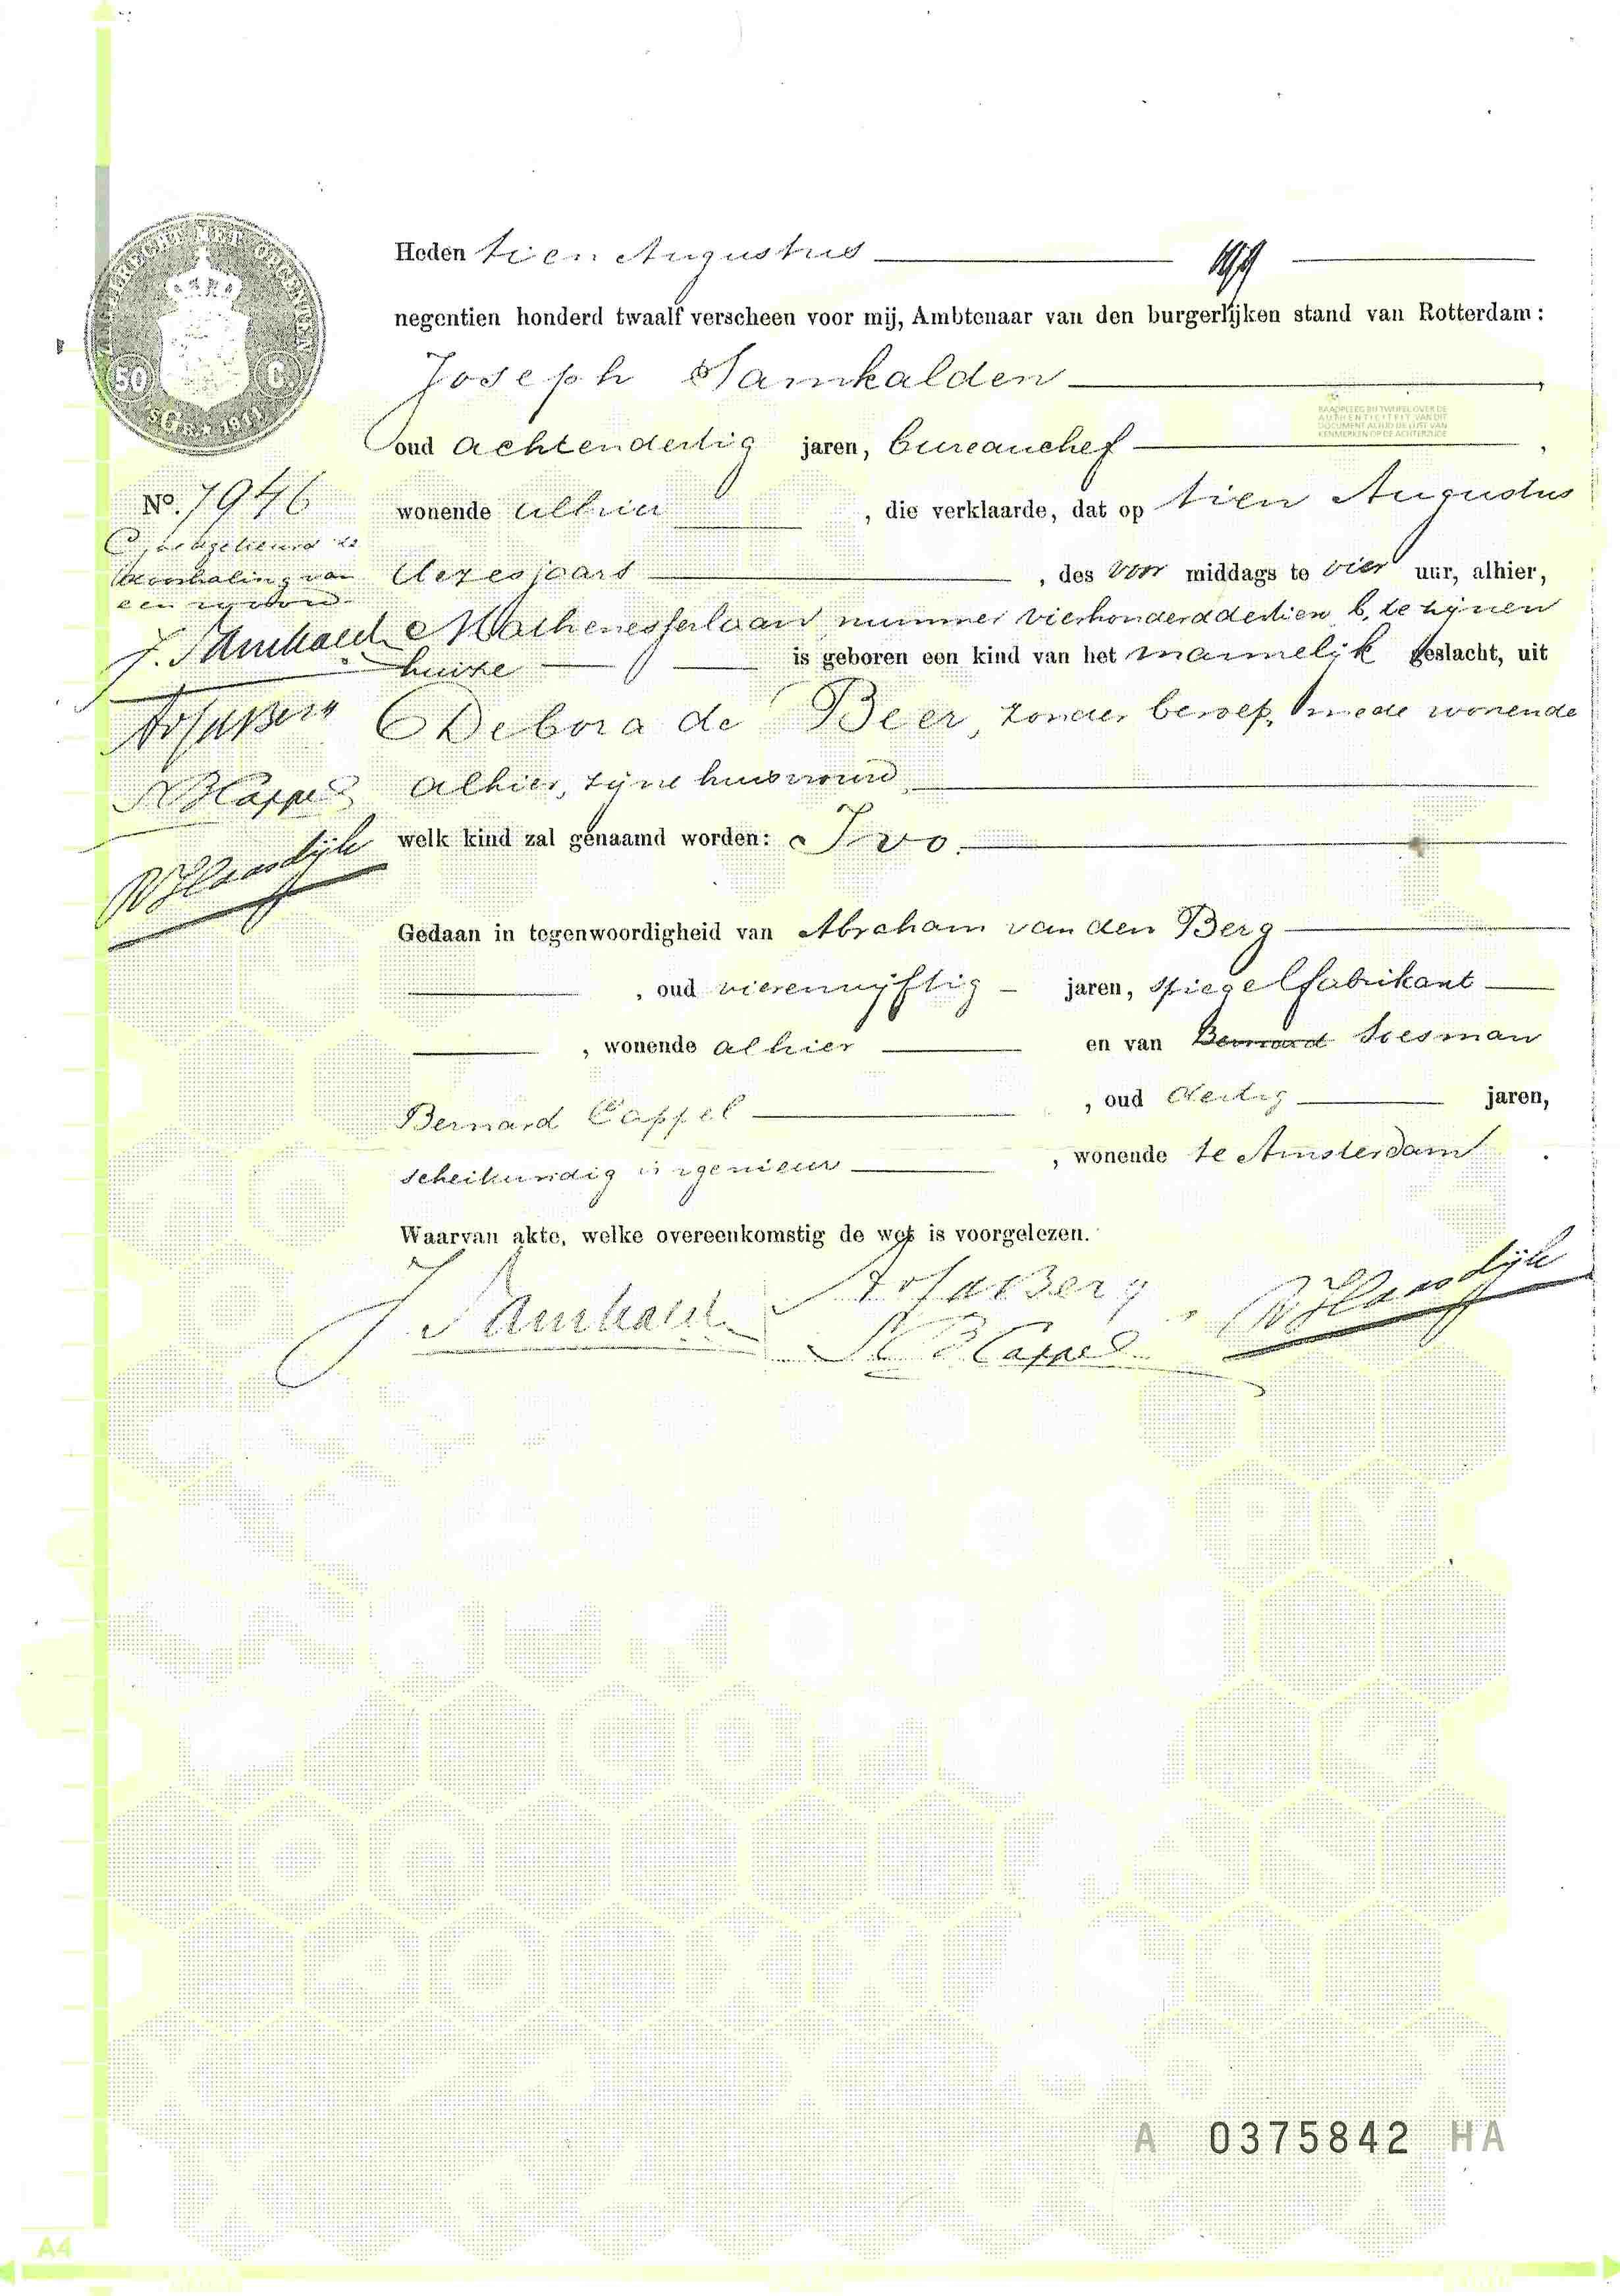 ZEGELRECHT MET OPCENTEN
50 C.
1911
Heden tien Augustus
negentien honderd twaalf verscheen voor mij, Ambtenaar van den burgerlijken stand van Rotterdam:
Joseph Samkalden
oud achtendertig jaren, bureauchef
RAADPLEEG BIJ TWIJFEL OVER DE
AUTHENTICITEIT VAN DIT
DOCUMENT ALTIJD DE LIJST VAN
KENMERKEN OP DE ACHTERZIJDE
No. 7946
wonende alhier , die verklaarde, dat op tien Augustus
dezes jaars , des voor middags te vier uur, alhier,
Doorhaling van
een
Mathenesserlaan nummer vierhonderddertien b, te zijnen
J. Samkald
huize is geboren een kind van het mannelijk geslacht, uit
Debora de Beer, zonder beroep, mede wonende
alhier, zijne huisvrouw,
B Cappel
welk kind zal genaamd worden: Ivo.
Gedaan in tegenwoordigheid van Abraham van den Berg
, oud vierenvijftig jaren, spiegelfabrikant
, wonende alhier en van Bernard Soesman
Bernard Cappel , oud dertig jaren,
scheikundig ingenieur , wonende te Amsterdam
Waarvan akte, welke overeenkomstig de wet is voorgelezen.
J Samkald
B Cappel
A 0375842 HA
A4